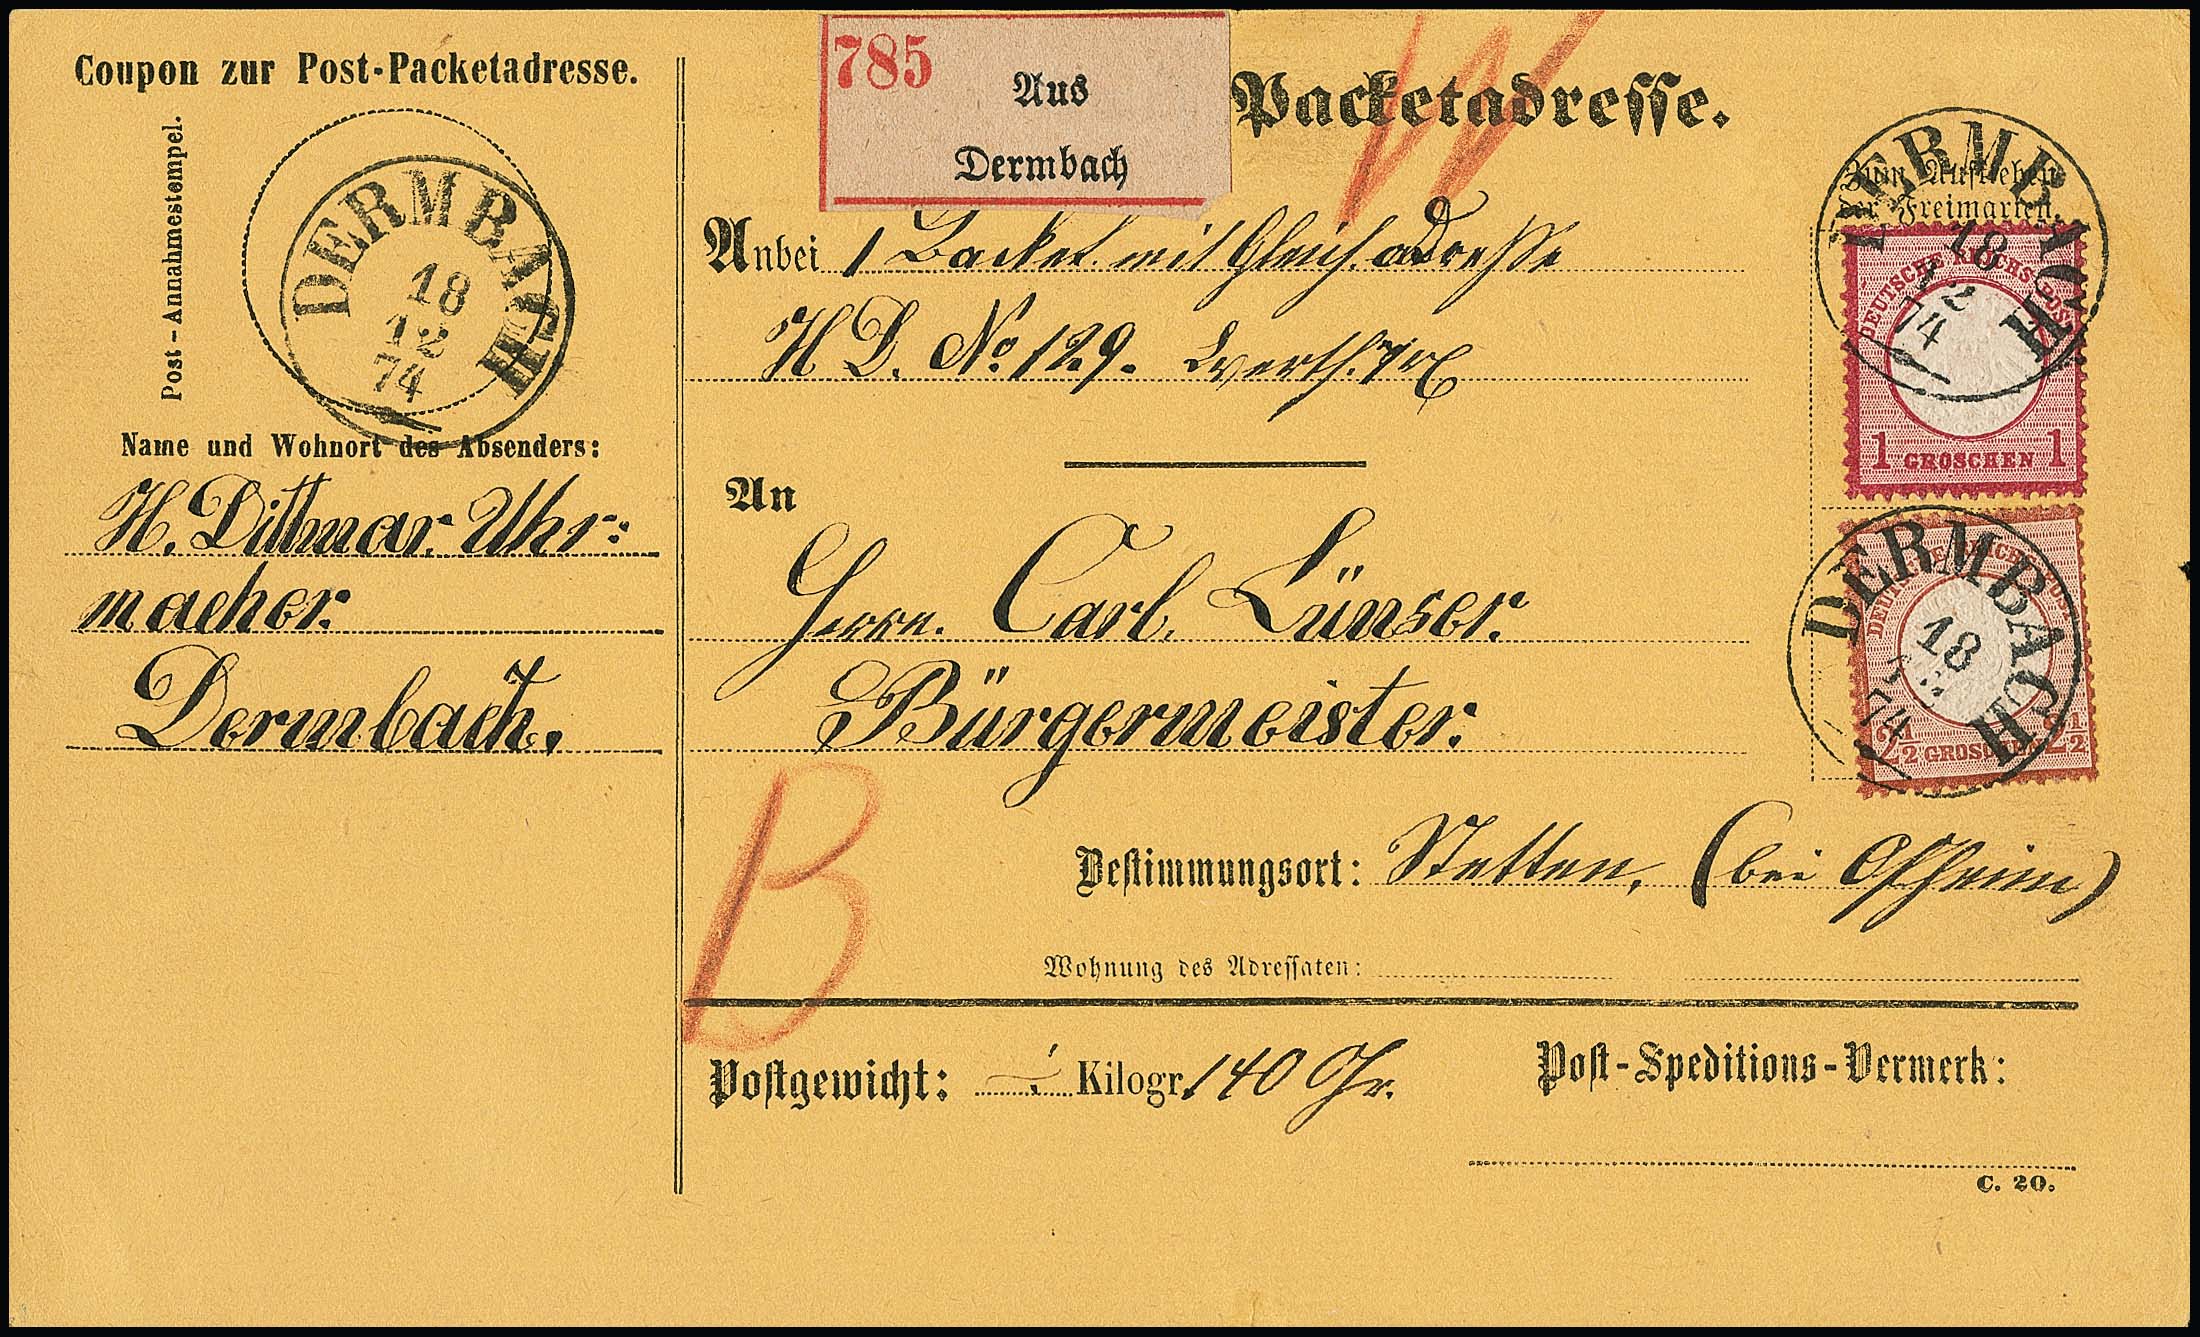 Coupon zur Post-Packetadresse.
Post-Annahmestempel.
DERMBACH
18
12
74
Name und Wohnort des Absenders:
H. Dittmar. Uhr:
macher.
Dermbach.
785
Aus
Dermbach
Packetadresse.
Anbei 1 Packet mit Gleich. adresse
H D. No. 129. Werth.
An
Herrn. Carl. Lünser.
Bürgermeister.
Bestimmungsort: Stetten, (bei Ostheim)
Wohnung des Adressaten:
B
Postgewicht: Kilogr. 140 Gr.
Post-Speditions-Vermerk:
C. 20.
Zum Aufkleben
der Freimarken.
DERMBACH
18
12
74
DEUTSCHE REICHS-POST
1 GROSCHEN 1
DERMBACH
18
12
74
DEUTSCHE REICHS-POST
2½ GROSCHEN 2½